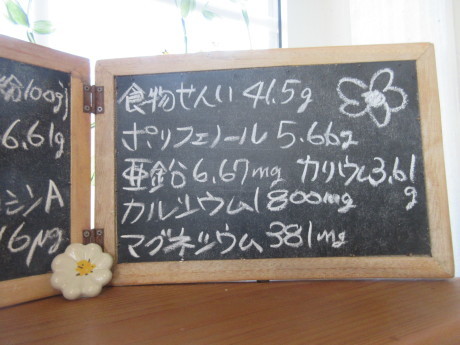 粉100g)
6.61g
ミンA
16μg
食物せんい 41.5g
ポリフェノール 5.66g
亜鉛 6.67mg カリウム3.61g
カルシウム1800mg
マグネシウム 381mg